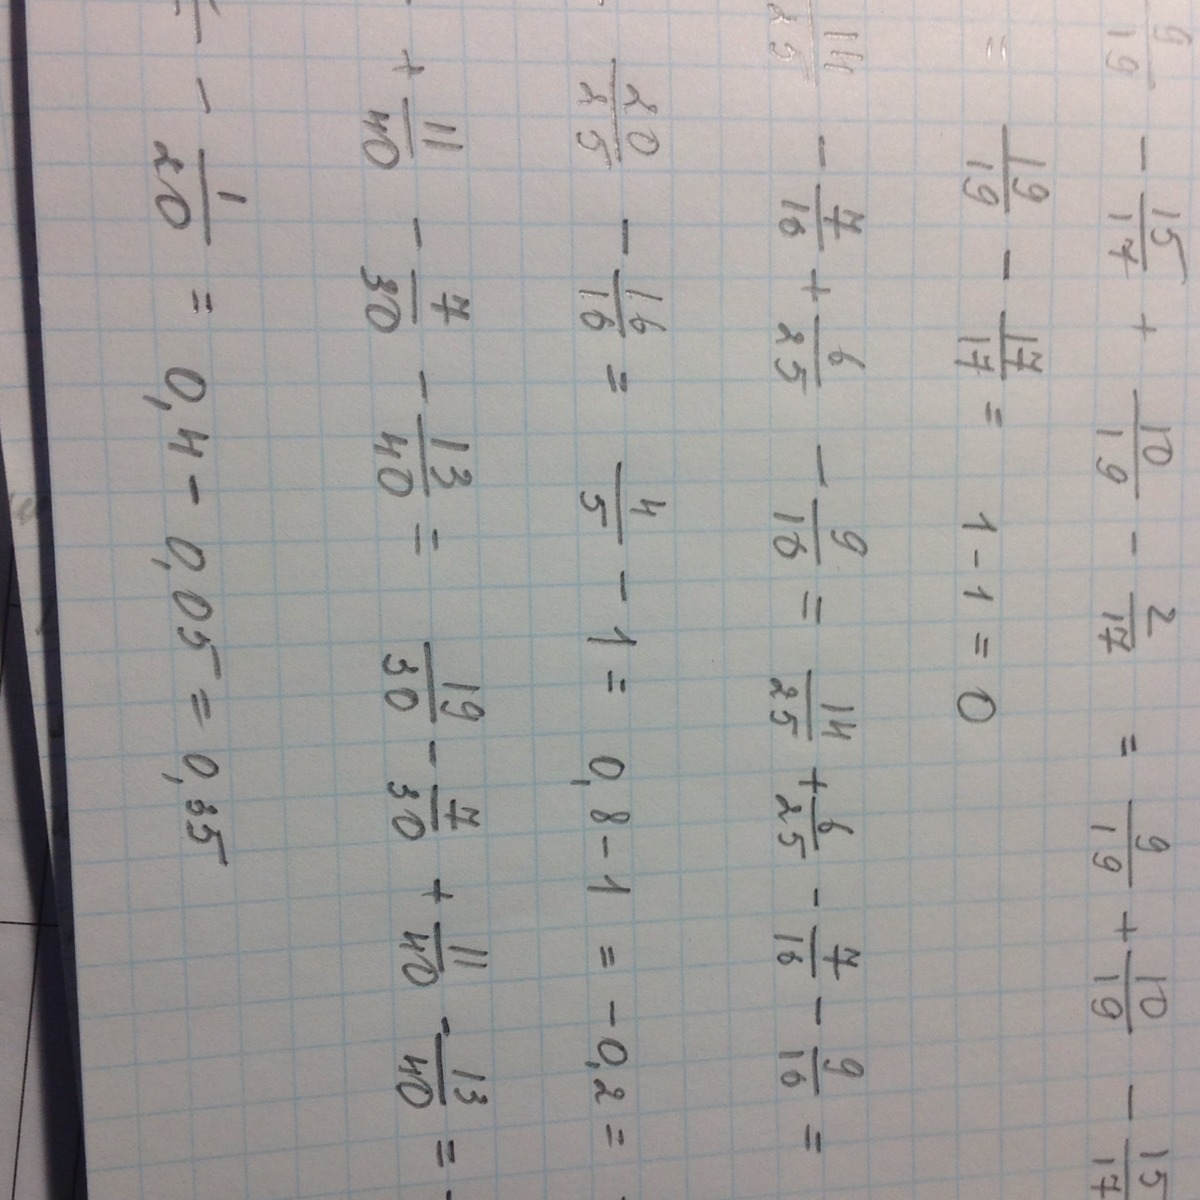 9/19 - 15/17 + 10/19 - 2/17 = 9/19 + 10/19 - 15/17
= 19/19 - 17/17 = 1 - 1 = 0
14/25 - 7/16 + 6/25 - 9/16 = 14/25 + 6/25 - 7/16 - 9/16 =
20/25 - 16/16 = 4/5 - 1 = 0,8 - 1 = -0,2 =
+ 11/40 - 7/30 - 13/40 = 19/30 - 7/30 + 11/40 - 13/40 =
- 1/20 = 0,4 - 0,05 = 0,35